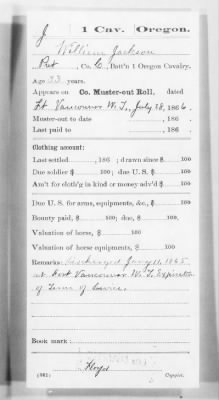 J | 1 Cav. | Oregon.
William Jackson
Pvt, Co. C, Batt'n 1 Oregon Cavalry.
Age 33 years.
Appears on Co. Muster-out Roll, dated
Ft. Vancouver W. T., July 28, 1866.
Muster-out to date , 186 .
Last paid to , 186 .
Clothing account:
Last settled , 186 ; drawn since $ 100
Due soldier $ 100; due U. S. $ 100
Am't for cloth'g in kind or money adv'd $ 100
Due U. S. for arms, equipments, &c., $ 100
Bounty paid, $ 100; due, $ 100
Valuation of horse, $ 100
Valuation of horse equipments, $ 100
Remarks: Discharged Jany 11, 1865
at Fort Vancouver W. T. Expiration
of Term of Service.
Book mark:
(361) Copyist.